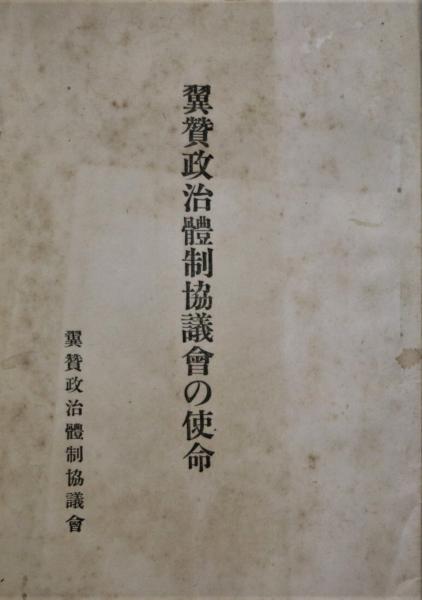 翼贊政治體制協議會の使命
翼贊政治體制協議會